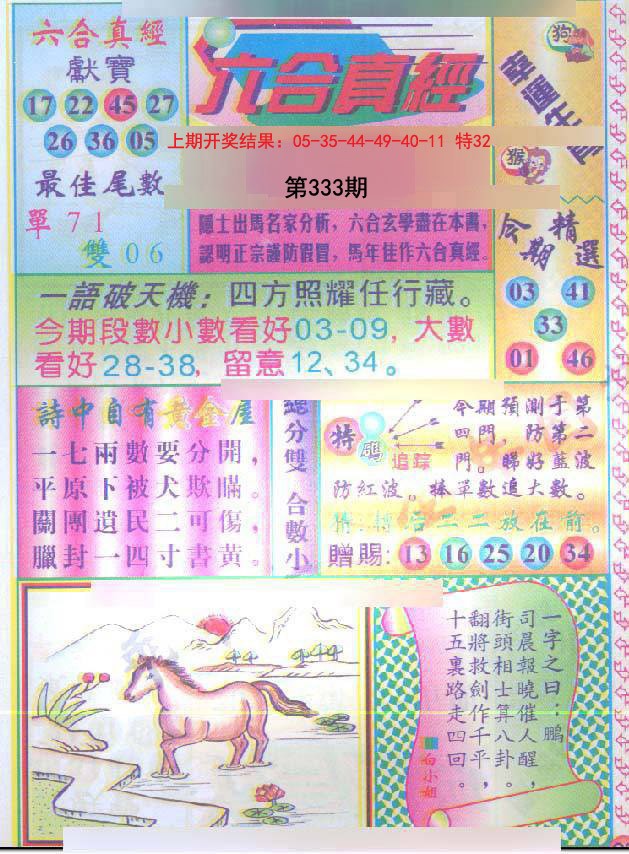 六合真經
獻寶
17 22 45 27
26 36 05
最佳尾數
單 71
雙 06
六合真經
上期开奖结果：05-35-44-49-40-11 特32
第333期
隱士出馬名家分析，六合玄學盡在本書，
認明正宗謹防假冒，馬年佳作六合真經。
狗
猴
今期精選
03 41
33
01 46
一語破天機：四方照耀任行藏。
今期段數小數看好03-09，大數
看好28-38，留意12、34。
詩中自有黃金屋
一七兩數要分開，
平原下被犬欺瞞。
關團遺民二可傷，
臘封一四寸書黃。
總分雙 合數小
特碼
追踪
今期預測于第
四門，防第二
門。睇好藍波
防紅波。棒單數追大數。
二二放在前。
贈賜：13 16 25 20 34
一字之曰：鵬
司晨報曉催人醒，
街頭相士算八卦。
翻將救劍作千平，
十五裏路走四回。
白小姐